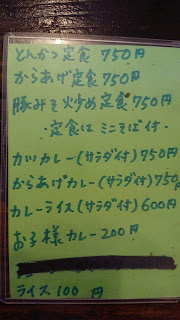 とんかつ定食 750円
からあげ定食 750円
豚みそ炒め定食 750円
・定食は ミニそば付・
カツカレー(サラダ付)750円
からあげカレー(サラダ付)750円
カレーライス(サラダ付)600円
お子様カレー 200円
ライス 100 円